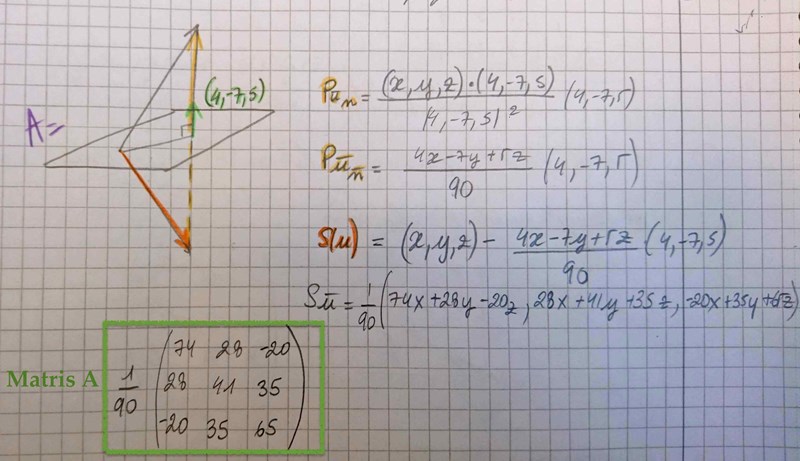 A=
(4,-7,5)
Pū_n = (x,y,z)·(4,-7,5) / |4,-7,5|² (4,-7,5)
Pū_n̄ = 4x-7y+5z / 90 (4,-7,5)
S(u) = (x,y,z) - 4x-7y+5z / 90 (4,-7,5)
Sū = 1/90 (74x+28y-20z, 28x+41y+35z, -20x+35y+65z)
Matris A
1/90
74 28 -20
28 41 35
-20 35 65